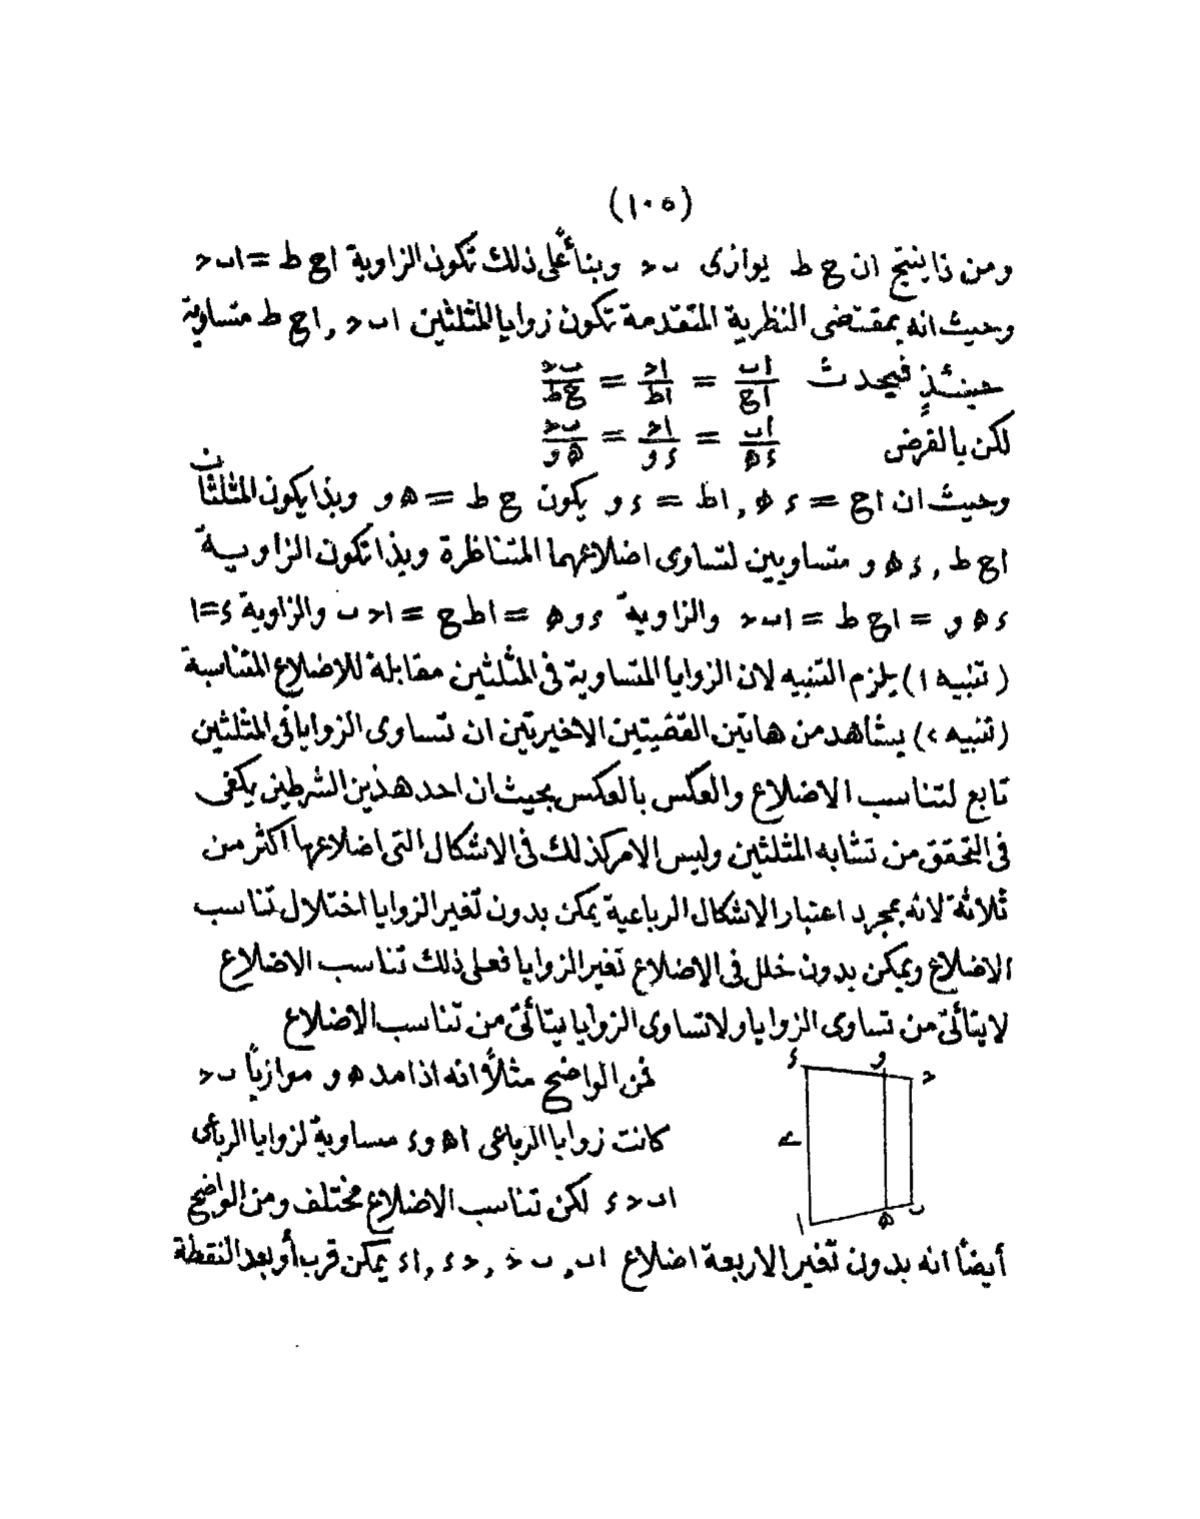 (١٠٥)
ومن ذا ينتج ان ح ط يوازى ب د وبناءً على ذلك تكون الزاوية ا ح ط = ا ب د
وحيث انه بمقتضى النظرية المتقدمة تكون زوايا المثلثين ا ب د , ا ح ط متساوية
حينئذٍ فيحدث اب/اح = اد/اط = بد/حط
لكن بالفرض اب/ءه = اد/ءو = بد/هو
وحيث ان اح = ء ه , اط = ء و يكون ح ط = ه و وبذا يكون المثلثان
ا ح ط , ء ه و متساويين لتساوى اضلاعهما المتناظرة وبذا تكون الزاوية
ء ه و = ا ح ط = ا ب د والزاوية ء و ه = ا ط ح = ا د ب والزاوية ء = ا
(تنبيه ١) يلزم التنبيه لان الزوايا المتساوية فى المثلثين مقابلة للاضلاع المتناسبة
(تنبيه ٢) يشاهد من هاتين القضيتين الاخيرتين ان تساوى الزوايا فى المثلثين
تابع لتناسب الاضلاع والعكس بالعكس بحيث ان احد هذين الشرطين يكفى
فى التحقق من تشابه المثلثين وليس الامر كذلك فى الاشكال التى اضلاعها اكثر من
ثلاثة لانه بمجرد اعتبار الاشكال الرباعية يمكن بدون تغير الزوايا اختلال تناسب
الاضلاع ويمكن بدون خلل فى الاضلاع تغير الزوايا فعلى ذلك تناسب الاضلاع
لا يتأتى من تساوى الزوايا ولا تساوى الزوايا يتأتى من تناسب الاضلاع
فمن الواضح مثلاً انه اذا مد ه و موازياً ب د
كانت زوايا الرباعى ا ه و ء مساوية لزوايا الرباعى
ا ب د ء لكن تناسب الاضلاع مختلف ومن الواضح
أيضاً انه بدون تغير الاربعة اضلاع ا ب , ب د , د ء , ا ء يمكن قرب أو بعد النقطة
ء
و
د
ا
ه
ب